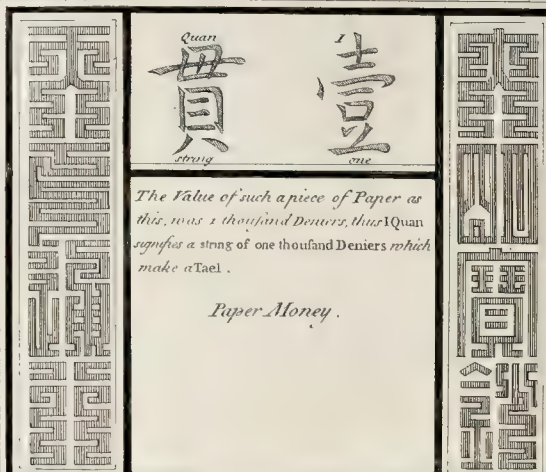 Quan I
貫 壹
string one
The Value of such a piece of Paper as
this, was 1 thouſand Deniers, thus I Quan
signifies a string of one thouſand Deniers which
make a Tael .
Paper Money .